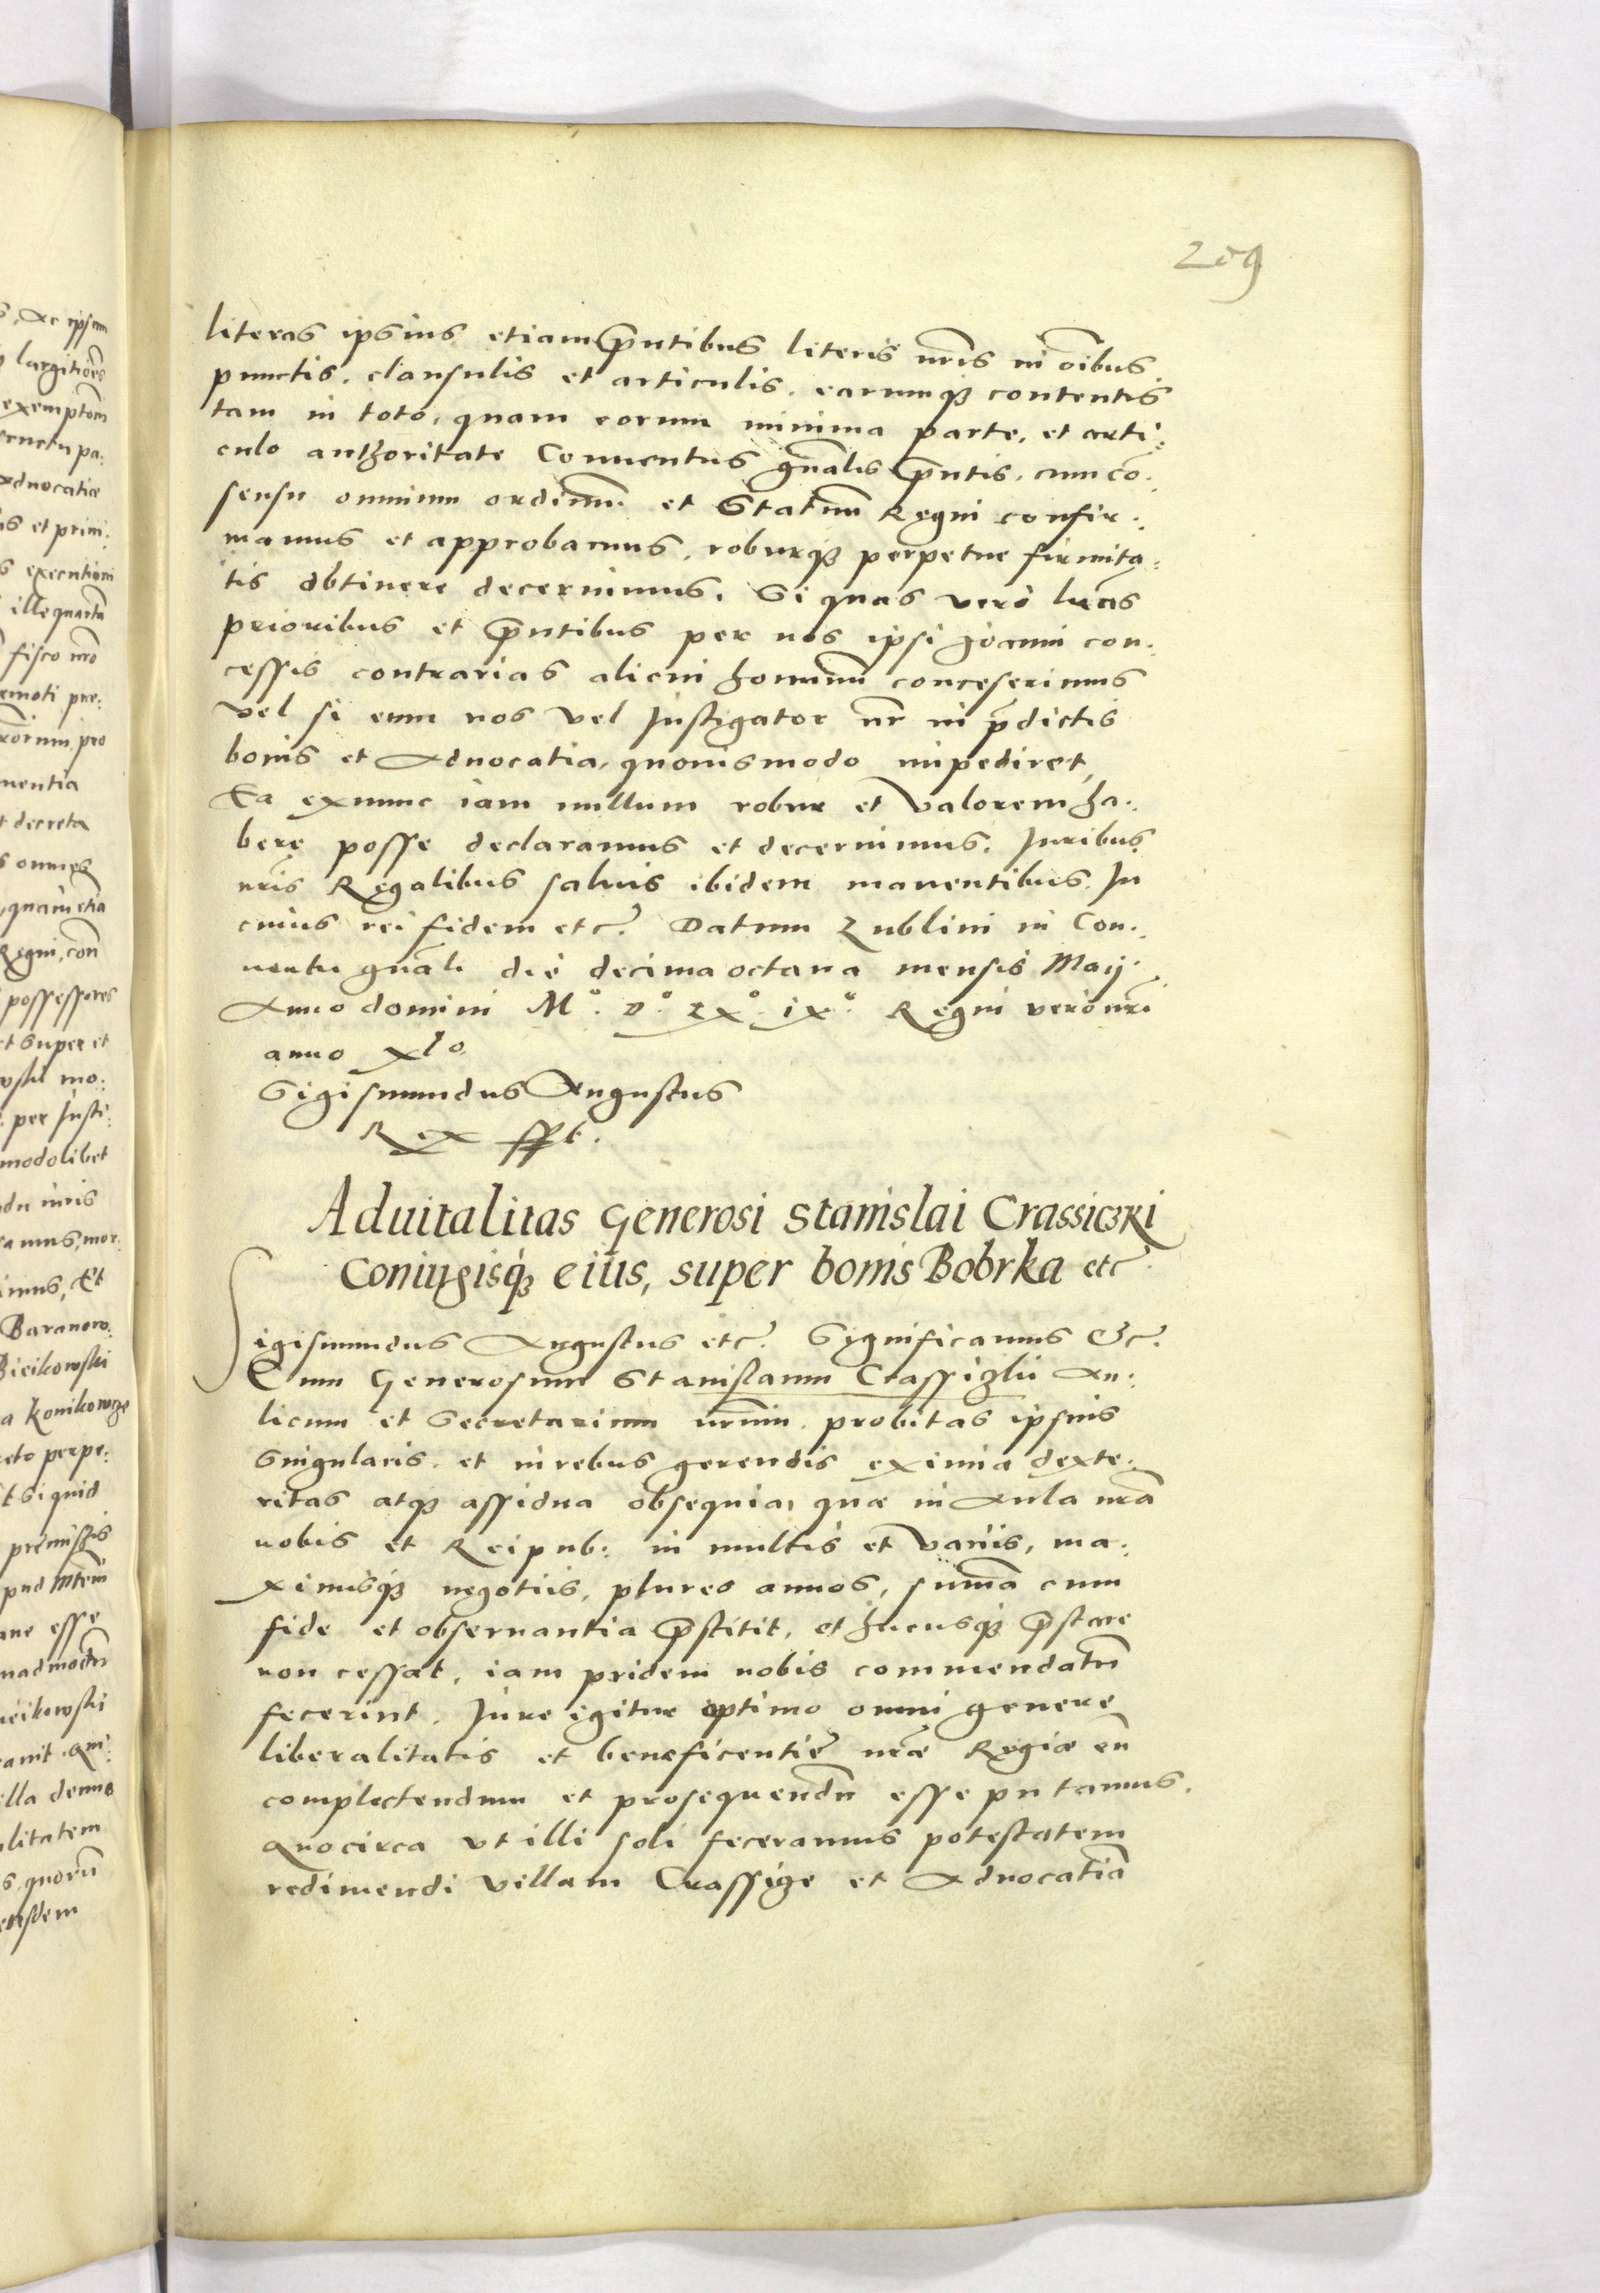 209
literas ipsius etiam pñtibus literis nr̃is in oĩbus
punctis, clausulis et articulis, earumq3 contentis
tam in toto, quam eorum minima parte, et arti:
culo authoritate Conuentus gñalis pñtis, cum cõ:
sensu omnium ordinum et Statuũ Regni confir:
mamus et approbamus, roburq3 perpetue firmita:
tis obtinere decernimus. Si quas vero lr̃as
prioribus et pñtibus per nos ipsi Joanni con:
cessis contrarias alicui hominũ concesserimus
vel si eum nos vel Instigator nr̃ in p̃dictis
bonis et Aduocatia, quouismodo impediret,
Ea exnunc iam nullum robur et valorem ha:
bere posse declaramus et decernimus. Juribus
nr̃is Regalibus saluis ibidem manentibus. In
cuius rei fidem etc. Datum Lublini in Con:
uentu gñali die decima octaua mensis Maij.
Anno domini M°. D°. LX°. ix°. Regni vero nr̃i
anno xlo.
Sigismundus Augustus
Rex sspt.
Aduitalitas Generosi Stanislai Crassiczki
Coniugisq3 eius, super bonis Bobrka etc
Sigismundus Augustus etc. Significamus &c.
Cum Generosum Stanislaum Crassiczki Au:
licum et Secretarium nrũm, probitas ipsius
singularis, et in rebus gerendis eximia dexte:
ritas atq3 assidua obsequia, quæ in Aula nr̃a
nobis et Reipub: in multis et variis, ma:
ximisq3 negotiis, plures annos, sum̃a cum
fide et obseruantia p̃stitit, et hucusq3 p̃stare
non cessat, iam pridem nobis commendatũ
fecerint. Jure igitur optimo omni genere
liberalitatis et beneficentię nr̃æ Regiæ eũ
complectendum et prosequendũ esse putamus.
Quocirca vt illi soli feceramus potestatem
redimendi villam Crassige et Aduocatiã